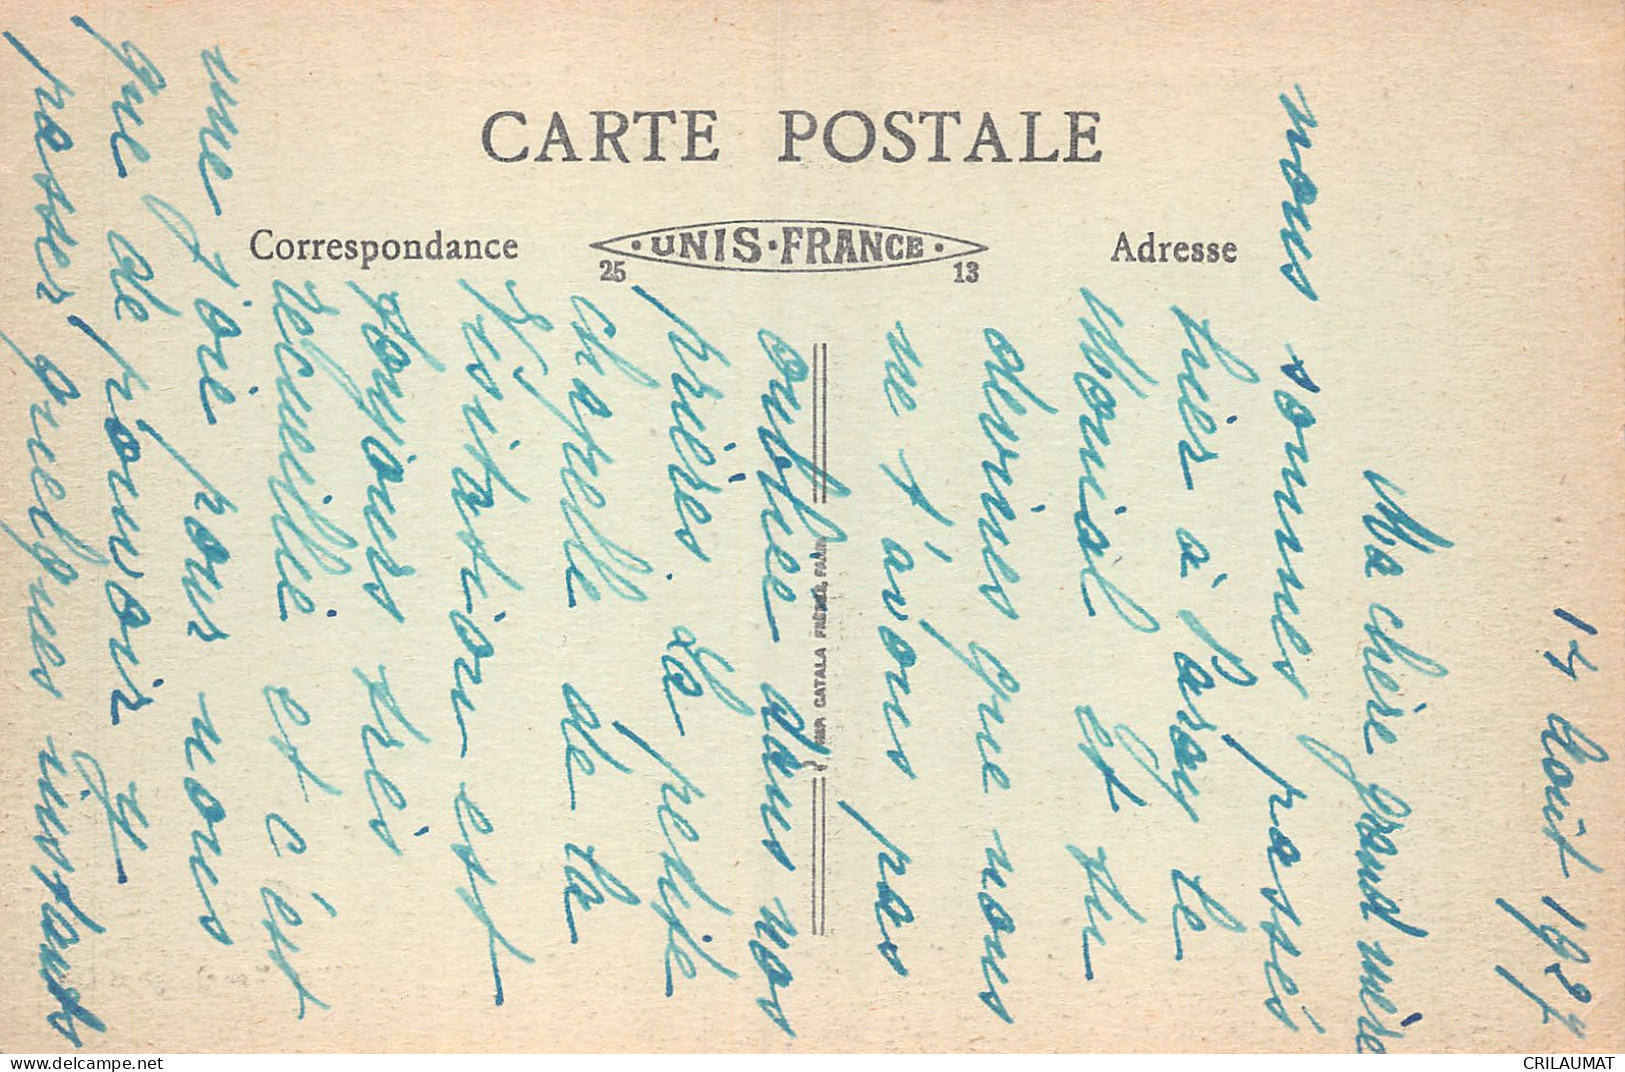 CARTE POSTALE
Correspondance
UNIS-FRANCE
25 13
Adresse
CATALA FRÈRES, PARIS
14 Août 1927
Ma chère grand mère
nous sommes passés
hier à Paray le
Monial et tu
devines que nous
ne t'avons pas
oubliée dans nos
prières. La petite
chapelle de la
Visitation est
toujours très
recueillie et c'est
une joie pour nous
que de pouvoir y
passer quelques instants
delcampe.net
CRILAUMAT